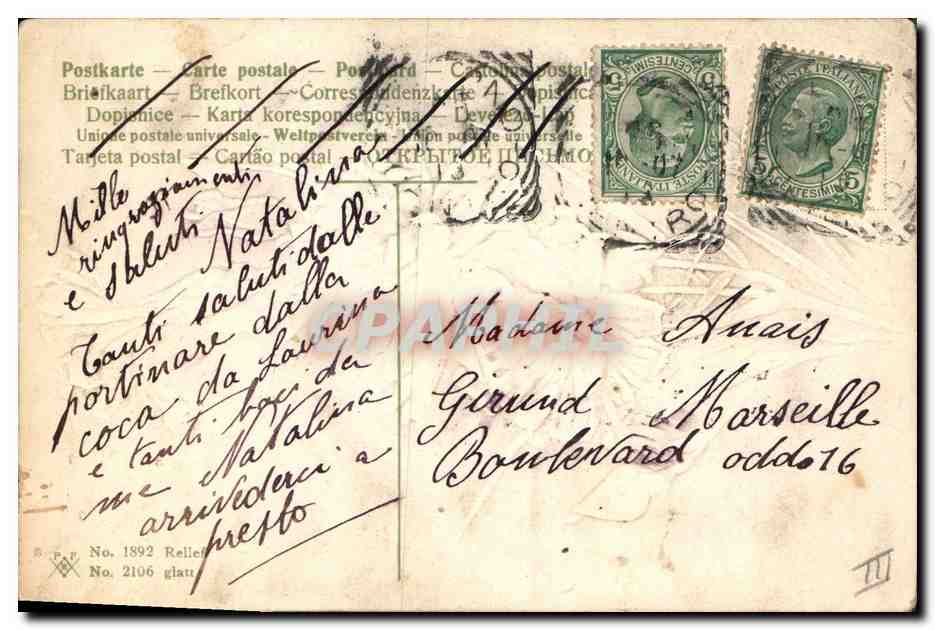 Postkarte — Carte postale — Postcard — Cartolina postale
Briefkaart — Brefkort — Correspondenzkarte — Dopisnica
Dopisnice — Karta korespondencyjna — Levelező-lap
Unione postale universale — Weltpostverein — Union postale universelle
Tarjeta postal — Cartão postal — ОТКРЫТОЕ ПИСЬМО
5 CENTESIMI 5
POSTE ITALIANE
POSTE ITALIANE
5 CENTESIMI 5
Mille
ringraziamentii
e saluti Natalina
Tanti saluti dalle
portinare dalla
coca da Laurina
e tanti baci da
me Natalina
arrivederci a
presto
Madame Anais
Girund Marseille
Boulevard oddo 16
CPAPHIL
No. 1892 Relief
No. 2106 glatt
III